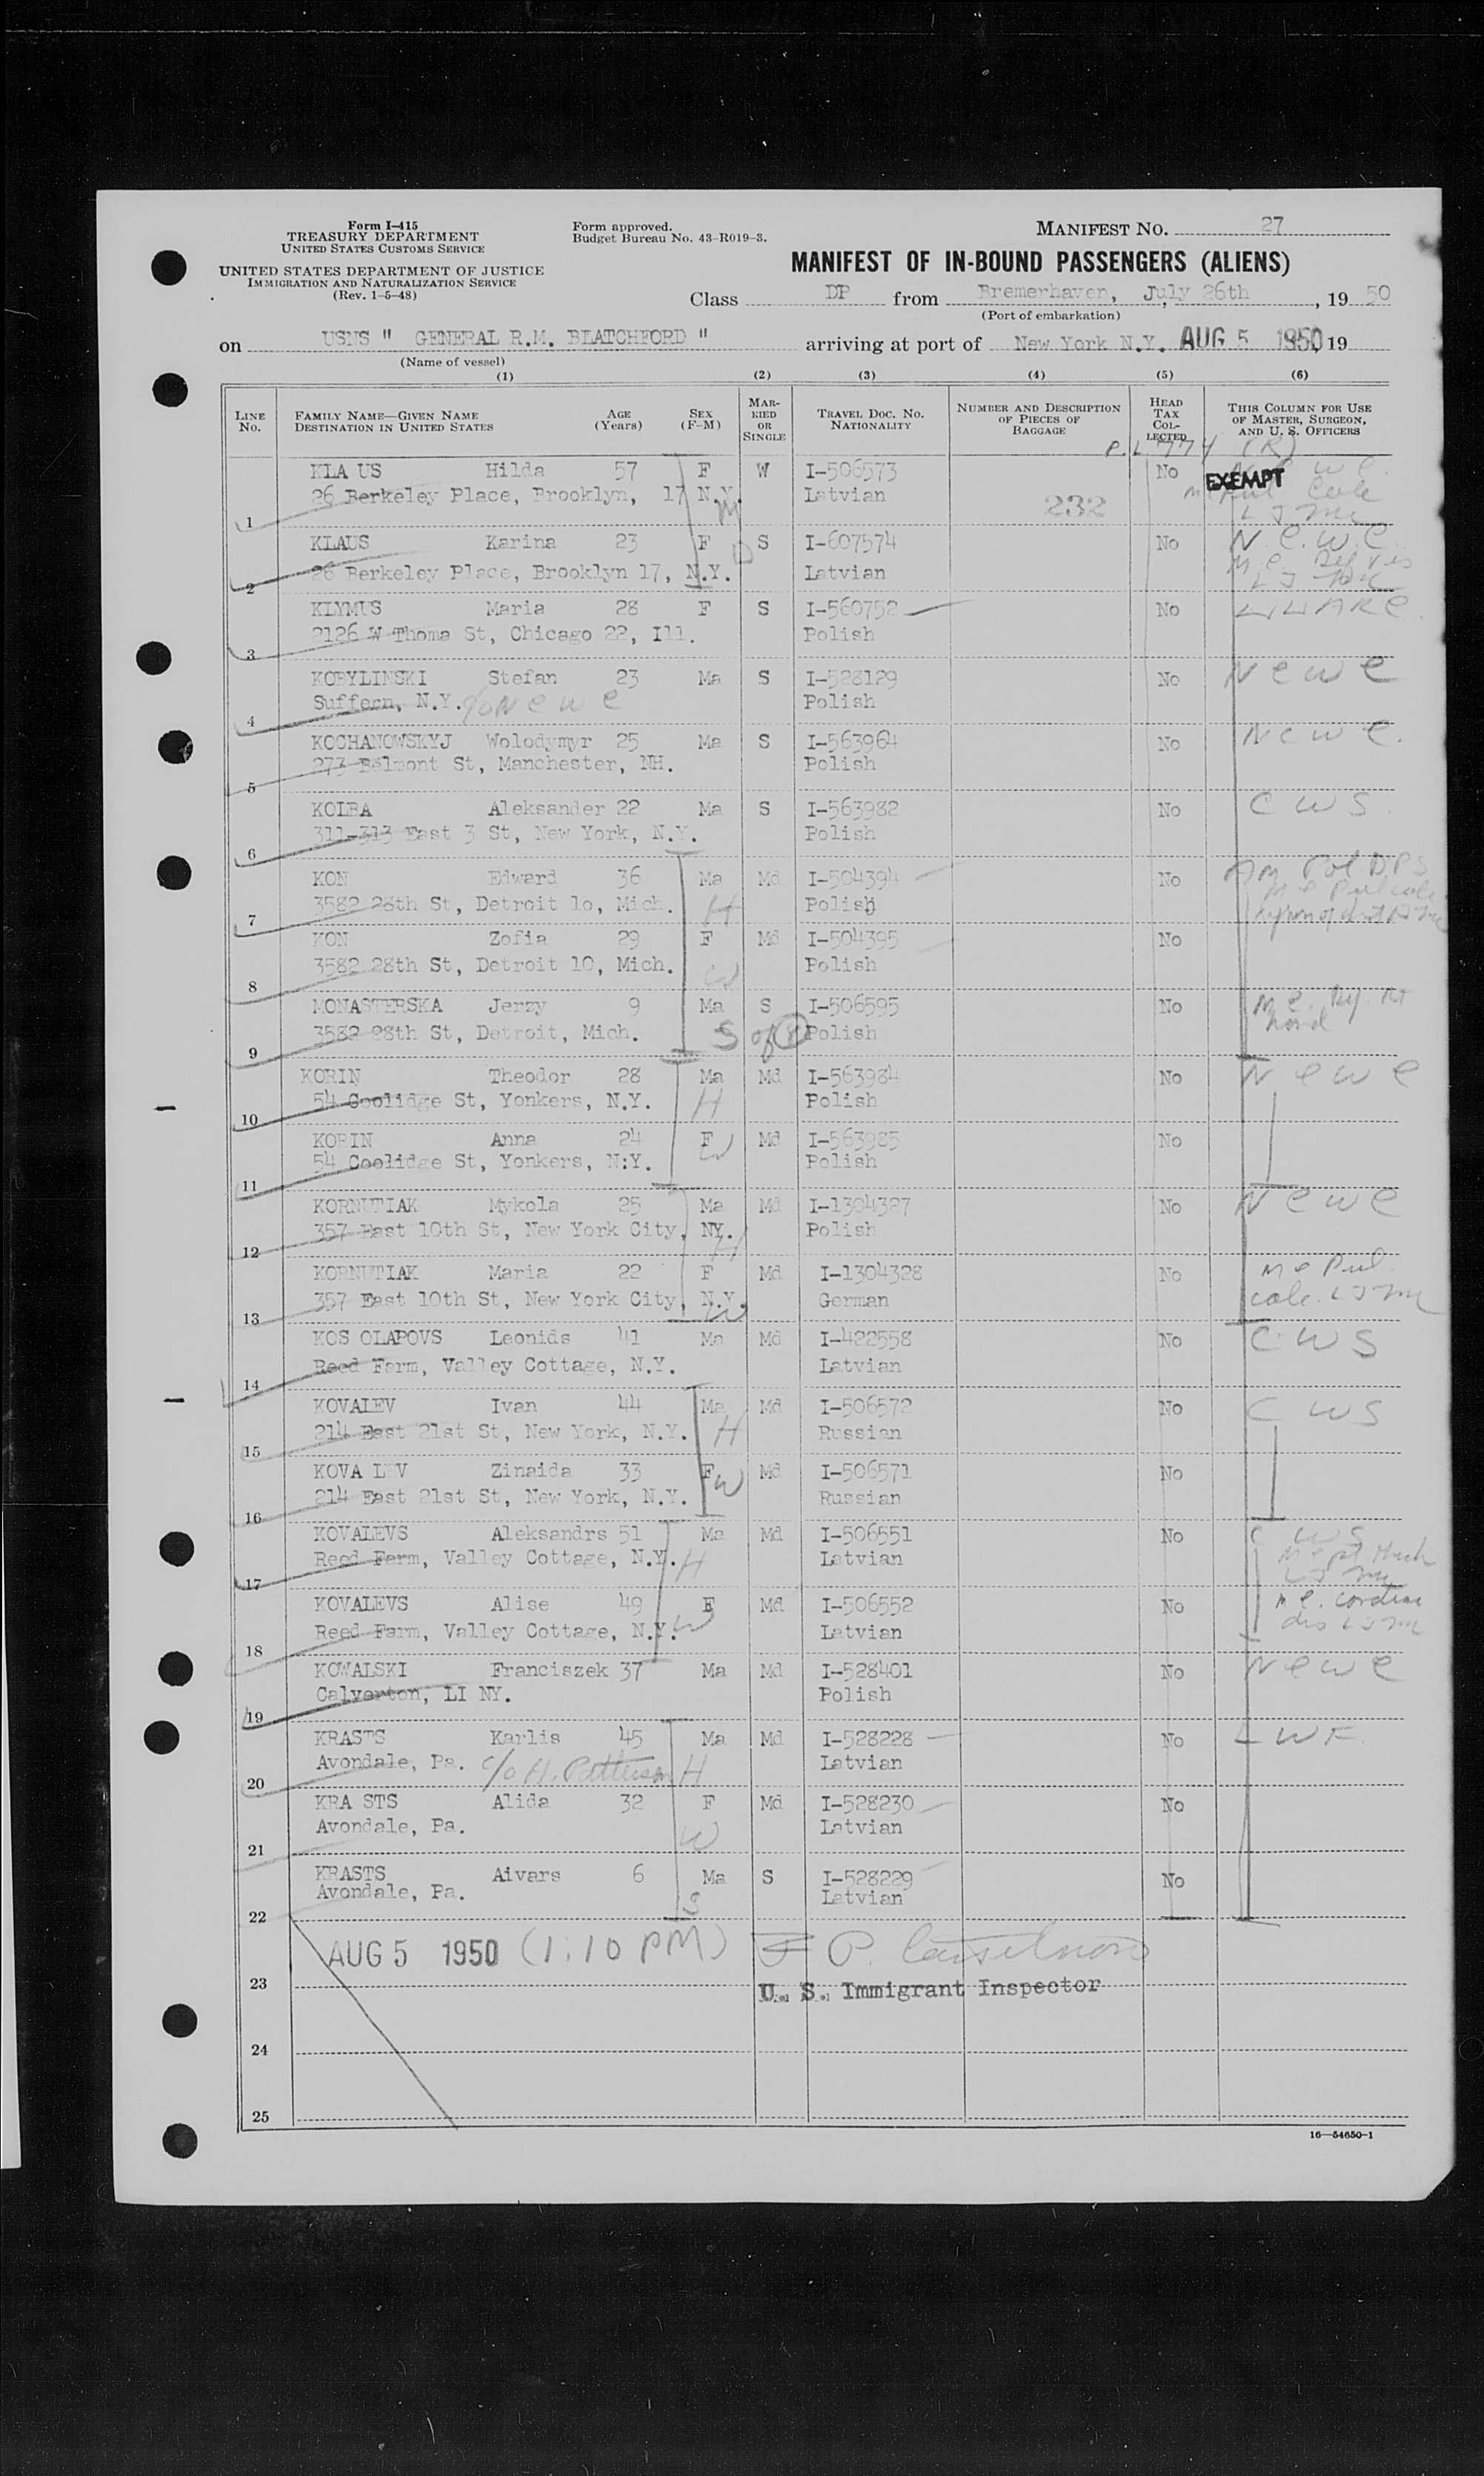 Form I-415
TREASURY DEPARTMENT
UNITED STATES CUSTOMS SERVICE
UNITED STATES DEPARTMENT OF JUSTICE
IMMIGRATION AND NATURALIZATION SERVICE
(Rev. 1-5-48)
Form approved.
Budget Bureau No. 43-R019-3.
MANIFEST NO. 27
MANIFEST OF IN-BOUND PASSENGERS (ALIENS)
Class DP from Bremerhaven, July 26th, 19 50
(Port of embarkation)
on USNS " GENERAL R.M. BLATCHFORD " arriving at port of New York N.Y. AUG 5 1950, 19
(Name of vessel)
(1) (2) (3) (4) (5) (6)
LINE NO. FAMILY NAME—GIVEN NAME DESTINATION IN UNITED STATES AGE (Years) SEX (F-M) MARRIED OR SINGLE TRAVEL DOC. NO. NATIONALITY NUMBER AND DESCRIPTION OF PIECES OF BAGGAGE HEAD TAX COLLECTED THIS COLUMN FOR USE OF MASTER, SURGEON, AND U. S. OFFICERS
P.L 774 (R)
KLA US Hilda 57 F W I-506573 No EXEMPT
1 26 Berkeley Place, Brooklyn, 17 N.Y. M Latvian 232
KLAUS Karina 23 F D S I-607574 No N.C.W.C.
2 26 Berkeley Place, Brooklyn 17, N.Y. Latvian
KLYMUS Maria 28 F S I-560752 No
3 2126 W Thoma St, Chicago 22, Ill. Polish
KOBYLINSKI Stefan 23 Ma S I-528129 No N C W C
4 Suffern, N.Y. c/o N C W C Polish
KOCHANOWSKYJ Wolodymyr 25 Ma S I-563964 No N C W C.
5 273 Belmont St, Manchester, NH. Polish
KOLBA Aleksander 22 Ma S I-563982 No C W S.
6 311-313 East 3 St, New York, N.Y. Polish
KON Edward 36 Ma Md I-504394 No Am Pol D.P.S
7 3582 28th St, Detroit 10, Mich. H Polish
KON Zofia 29 F Md I-504395 No
8 3582 28th St, Detroit 10, Mich. W Polish
MONASTERSKA Jerzy 9 Ma S I-506595 No
9 3582 28th St, Detroit, Mich. S of (8) Polish
KORIN Theodor 28 Ma Md I-563984 No N C W C
10 54 Coolidge St, Yonkers, N.Y. H Polish
KORIN Anna 24 F Md I-563985 No
11 54 Coolidge St, Yonkers, N:Y. W Polish
KORNUTIAK Mykola 25 Ma Md I-1304327 No N C W C
12 357 East 10th St, New York City, NY. H Polish
KORNUTIAK Maria 22 F Md I-1304328 No
13 357 East 10th St, New York City, N.Y. W German
KOS OLAPOVS Leonids 41 Ma Md I-422558 No C W S
14 Reed Farm, Valley Cottage, N.Y. Latvian
KOVALEV Ivan 44 Ma Md I-506572 No C W S
15 214 East 21st St, New York, N.Y. H Russian
KOVA LEV Zinaida 33 F Md I-506571 No
16 214 East 21st St, New York, N.Y. W Russian
KOVALEVS Aleksandrs 51 Ma Md I-506551 No C W S
17 Reed Farm, Valley Cottage, N.Y. H Latvian
KOVALEVS Alise 49 F Md I-506552 No
18 Reed Farm, Valley Cottage, N.Y. W Latvian
KOWALSKI Franciszek 37 Ma Md I-528401 No N C W C
19 Calverton, LI NY. Polish
KRASTS Karlis 45 Ma Md I-528228 No L W F.
20 Avondale, Pa. c/o H. Patterson H Latvian
KRA STS Alida 32 F Md I-528230 No
21 Avondale, Pa. W Latvian
KRASTS Aivars 6 Ma S I-528229 No
22 Avondale, Pa. S Latvian
AUG 5 1950 (1:10 PM)
23 U. S. Immigrant Inspector
24
25
16—54650-1